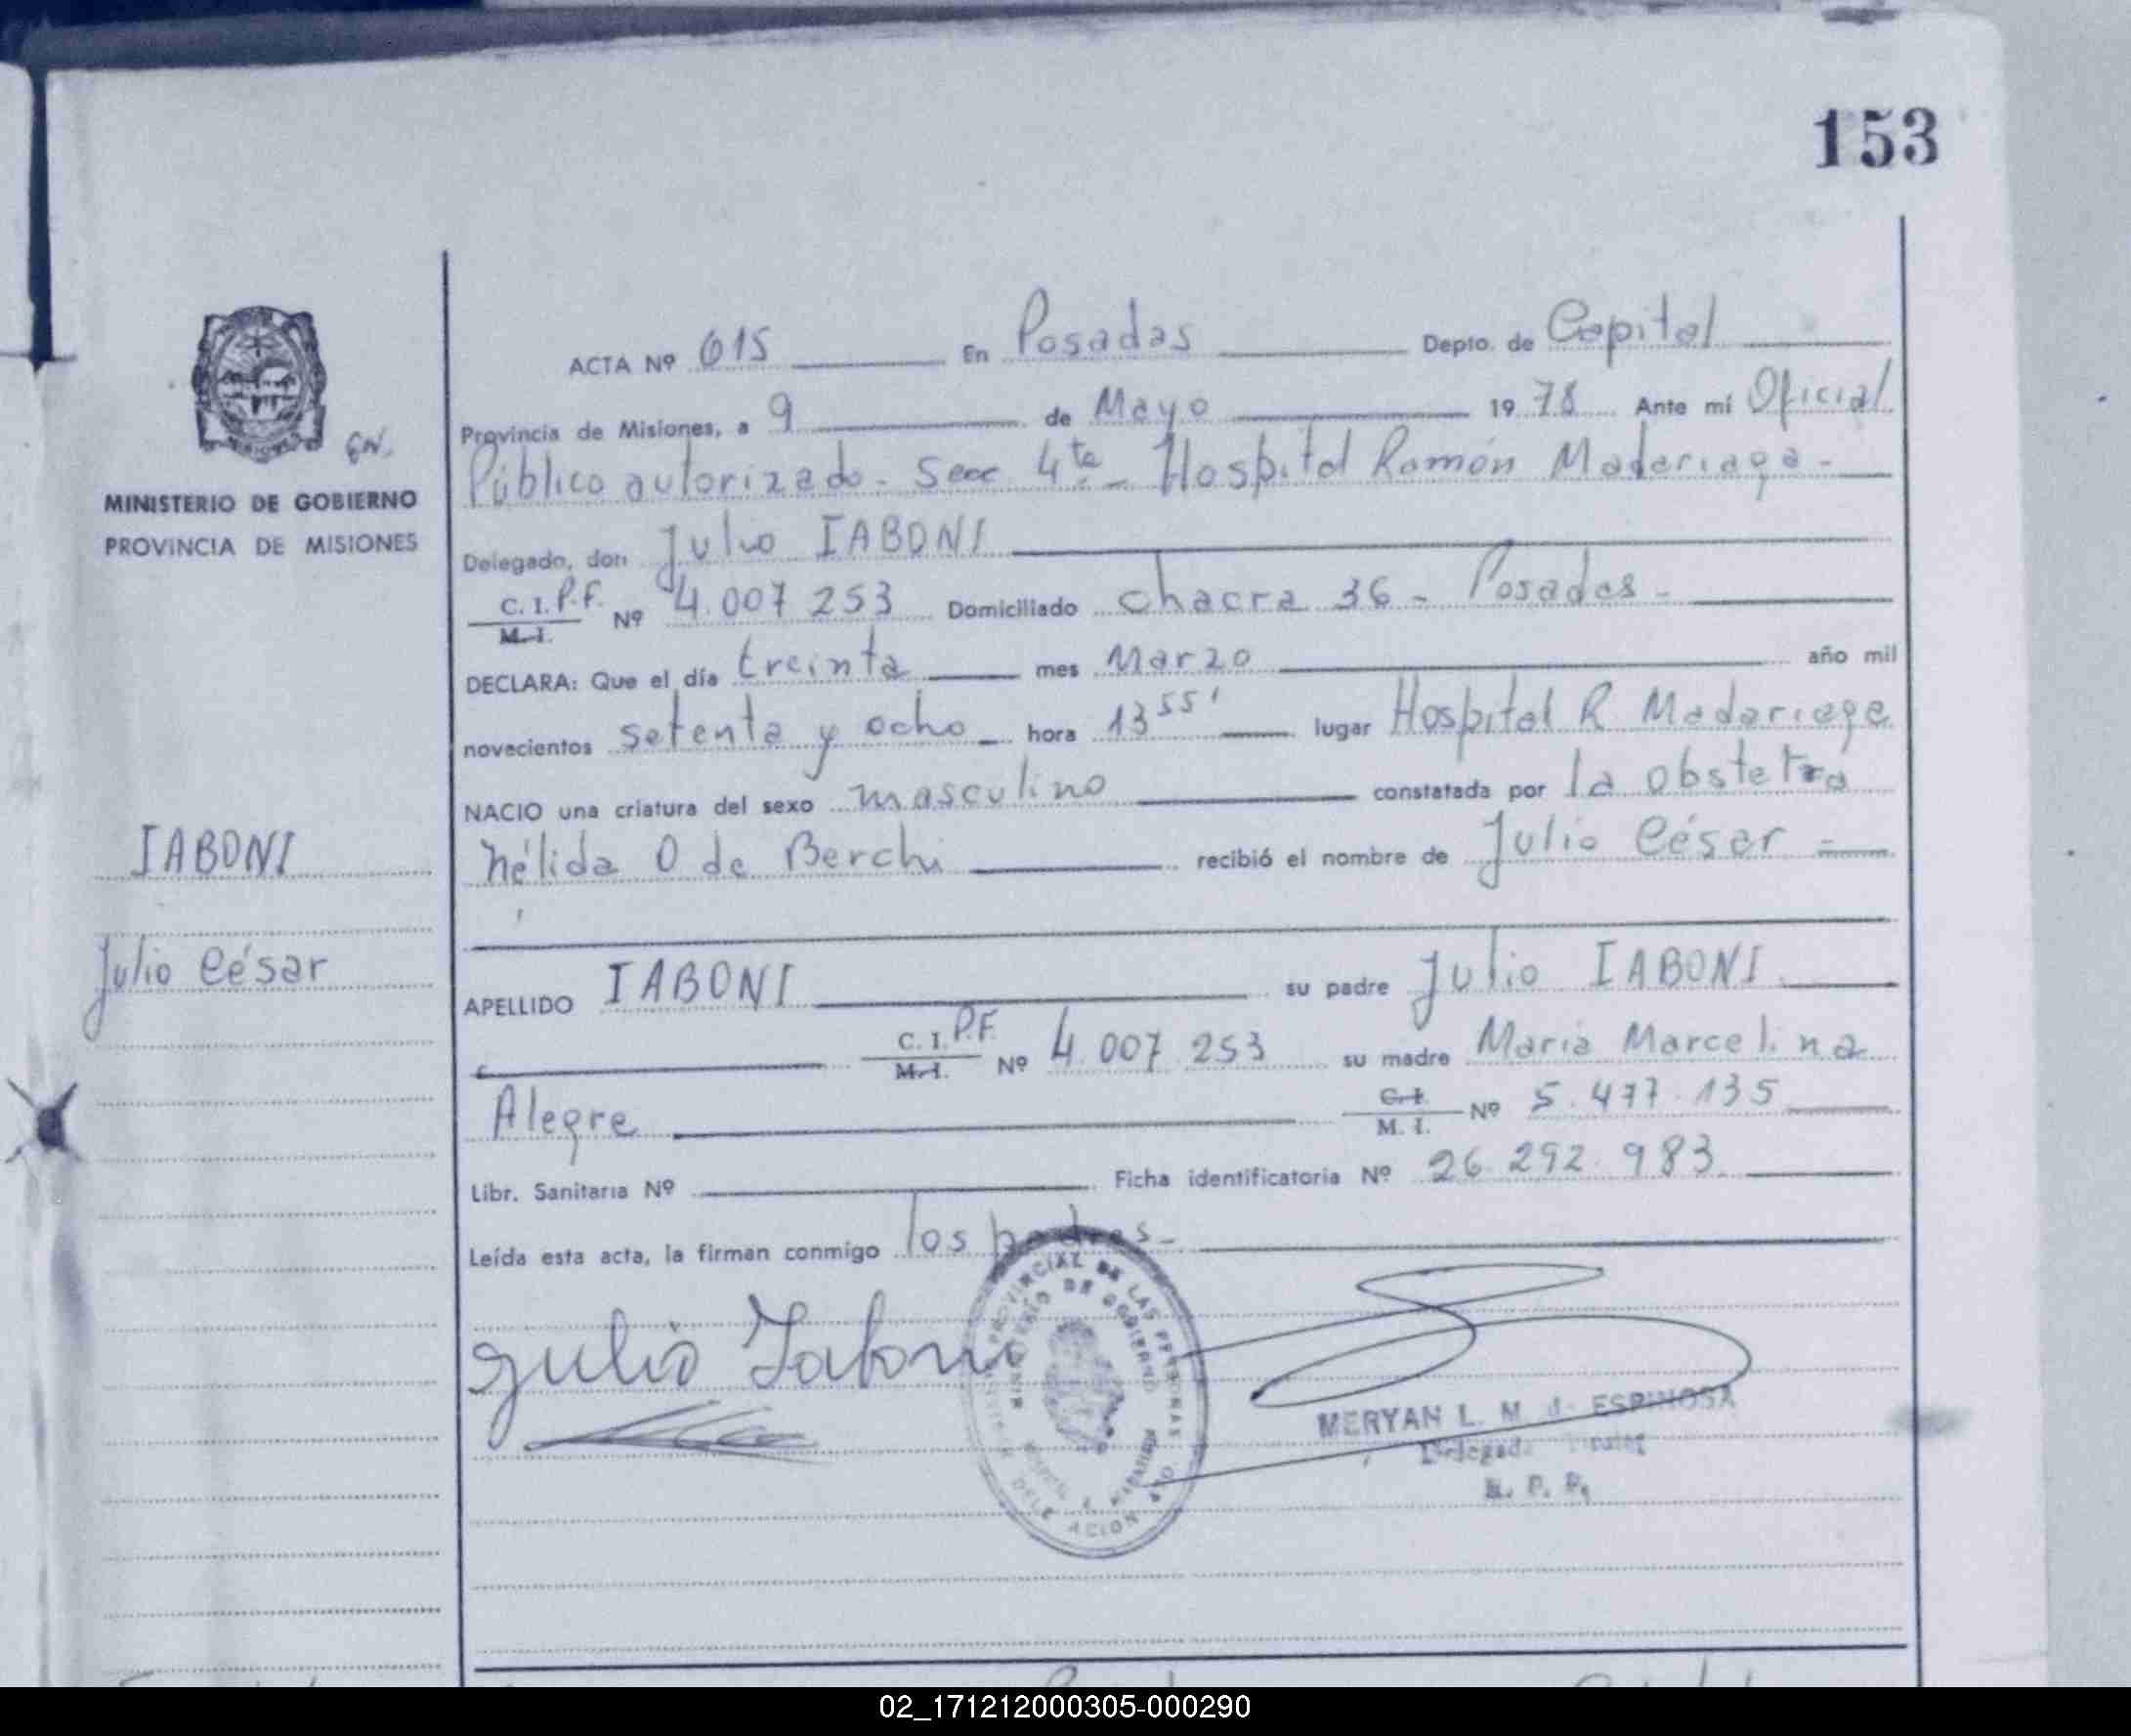 153
ACTA Nº 615 En Posadas Depto. de Capital
Provincia de Misiones, a 9 de Mayo 1978 Ante mí Oficial
Público autorizado - Secc 4ta - Hospital Ramón Madariaga -
MINISTERIO DE GOBIERNO
PROVINCIA DE MISIONES
Delegado, don Julio IABONI
C. I. P.F. M. I. Nº 4.007.253 Domiciliado chacra 36 - Posadas -
DECLARA: Que el día treinta mes Marzo año mil
novecientos setenta y ocho - hora 13 55' lugar Hospital R Madariaga
NACIO una criatura del sexo masculino constatada por la obstetra
Nélida O de Berchi recibió el nombre de Julio César -
IABONI
Julio César
APELLIDO IABONI su padre Julio IABONI
C. I. P.F. M. I. Nº 4.007.253 su madre María Marcelina
Alegre C. I. M. I. Nº 5.477.135
Libr. Sanitaria Nº Ficha identificatoria Nº 26.292.983
Leída esta acta, la firman conmigo los padres -
Julio Iaboni
PROVINCIAL DE LAS PERSONAS
MINISTERIO DE GOBIERNO
MERYAN L. M. de ESPINOSA
Delegada Titular
R. P. P.
02_171212000305-000290